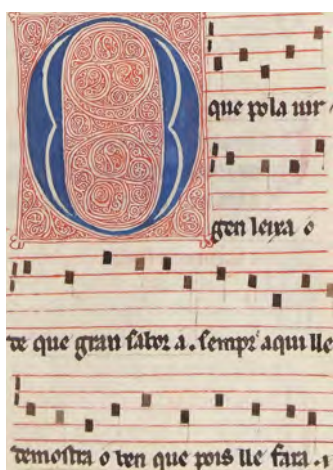 O que pola uir-
gen leixa o
de que gran sabor a. sempr' aqui lle
demostra o ben que pois lle fara.